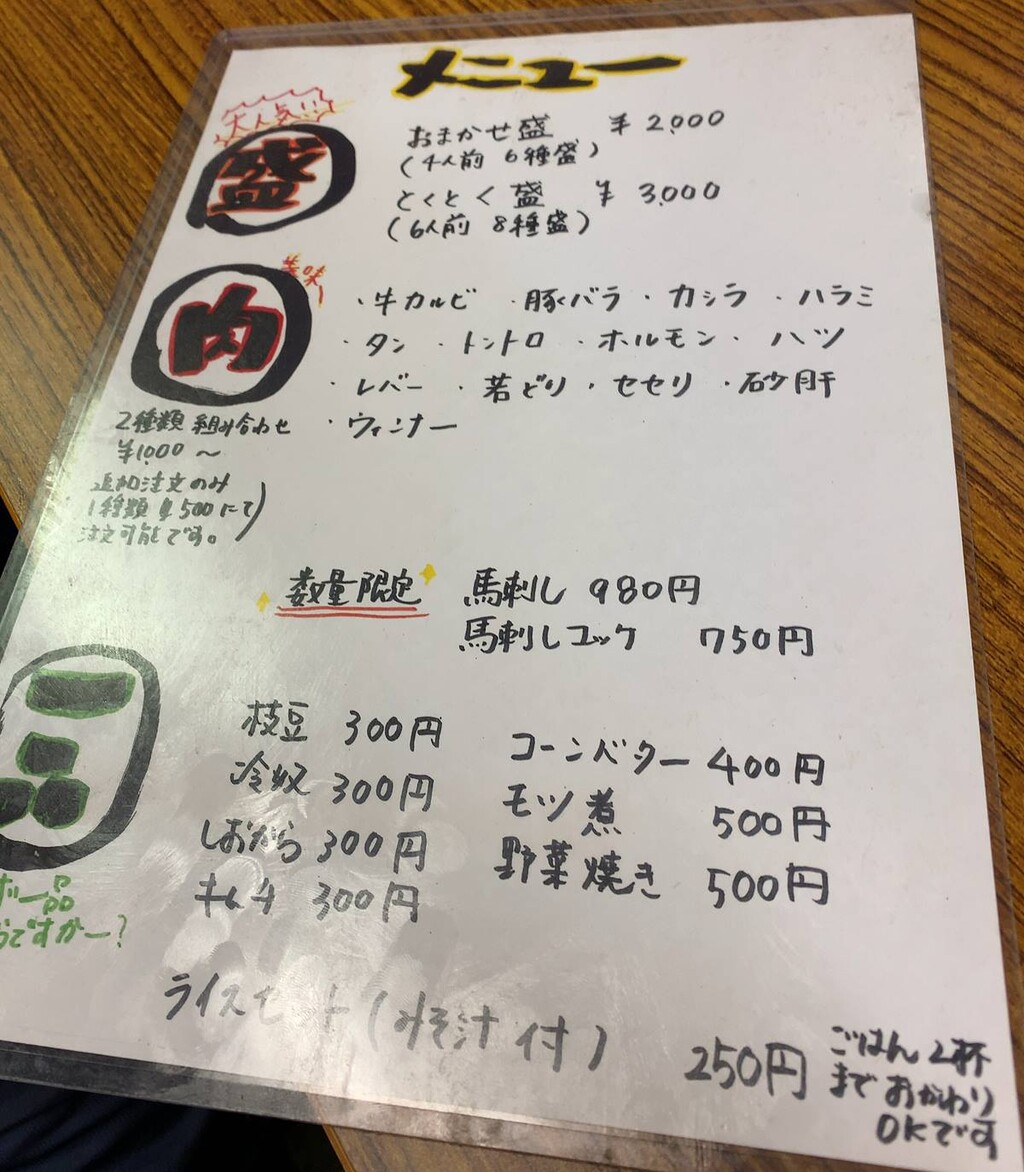 メニュー
大人気!!!
盛
おまかせ盛 ¥2,000
(4人前 6種盛)
とくとく盛 ¥3,000
(6人前 8種盛)
美味
肉
・牛カルビ ・豚バラ ・カシラ ・ハラミ
・タン ・トントロ ・ホルモン ・ハツ
・レバー ・若どり ・セセリ ・砂肝
・ウィンナー
2種類 組み合わせ
¥1,000〜
追加注文のみ
1種類¥500にて
注文可能です。)
数量限定 馬刺し 980円
馬刺しユッケ 750円
一品
枝豆 300円
冷奴 300円
しおから 300円
キムチ 300円
コーンバター 400円
モツ煮 500円
野菜焼き 500円
一品
ですかー?
ライスセット(みそ汁付) 250円
ごはん2杯
までおかわり
OKです